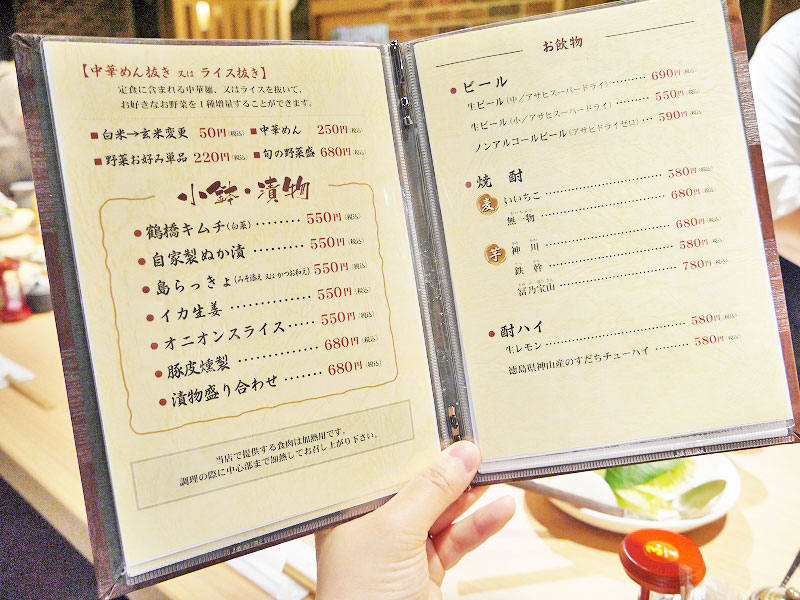 【中華めん抜き 又は ライス抜き】
定食に含まれる中華麺、又はライスを抜いて、
お好きなお野菜を1種増量することができます。
■白米→玄米変更 50円(税込) ■中華めん 250円(税込)
■野菜お好み単品 220円(税込) ■旬の野菜盛 680円(税込)
小鉢・漬物
●鶴橋キムチ(白菜) ········ 550円(税込)
●自家製ぬか漬 ·········· 550円(税込)
●島らっきょ(みそ添え 又は かつお和え) 550円(税込)
●イカ生姜 ·············· 550円(税込)
●オニオンスライス ····· 550円(税込)
●豚皮燻製 ·············· 680円(税込)
●漬物盛り合わせ ······· 680円(税込)
当店で提供する食肉は加熱用です。
調理の際に中心部まで加熱してお召し上がり下さい。
お飲物
●ビール
生ビール(中/アサヒスーパードライ) ········· 690円(税込)
生ビール(小/アサヒスーパードライ) ········· 550円(税込)
ノンアルコールビール(アサヒドライゼロ) ···· 590円(税込)
●焼酎
麦 いいちこ ························ 580円(税込)
無一物 ························ 680円(税込)
芋 神川 ························ 680円(税込)
鉄幹 ························ 580円(税込)
富乃宝山 ························ 780円(税込)
●酎ハイ
生レモン ························ 580円(税込)
徳島県神山産のすだちチューハイ ········ 580円(税込)